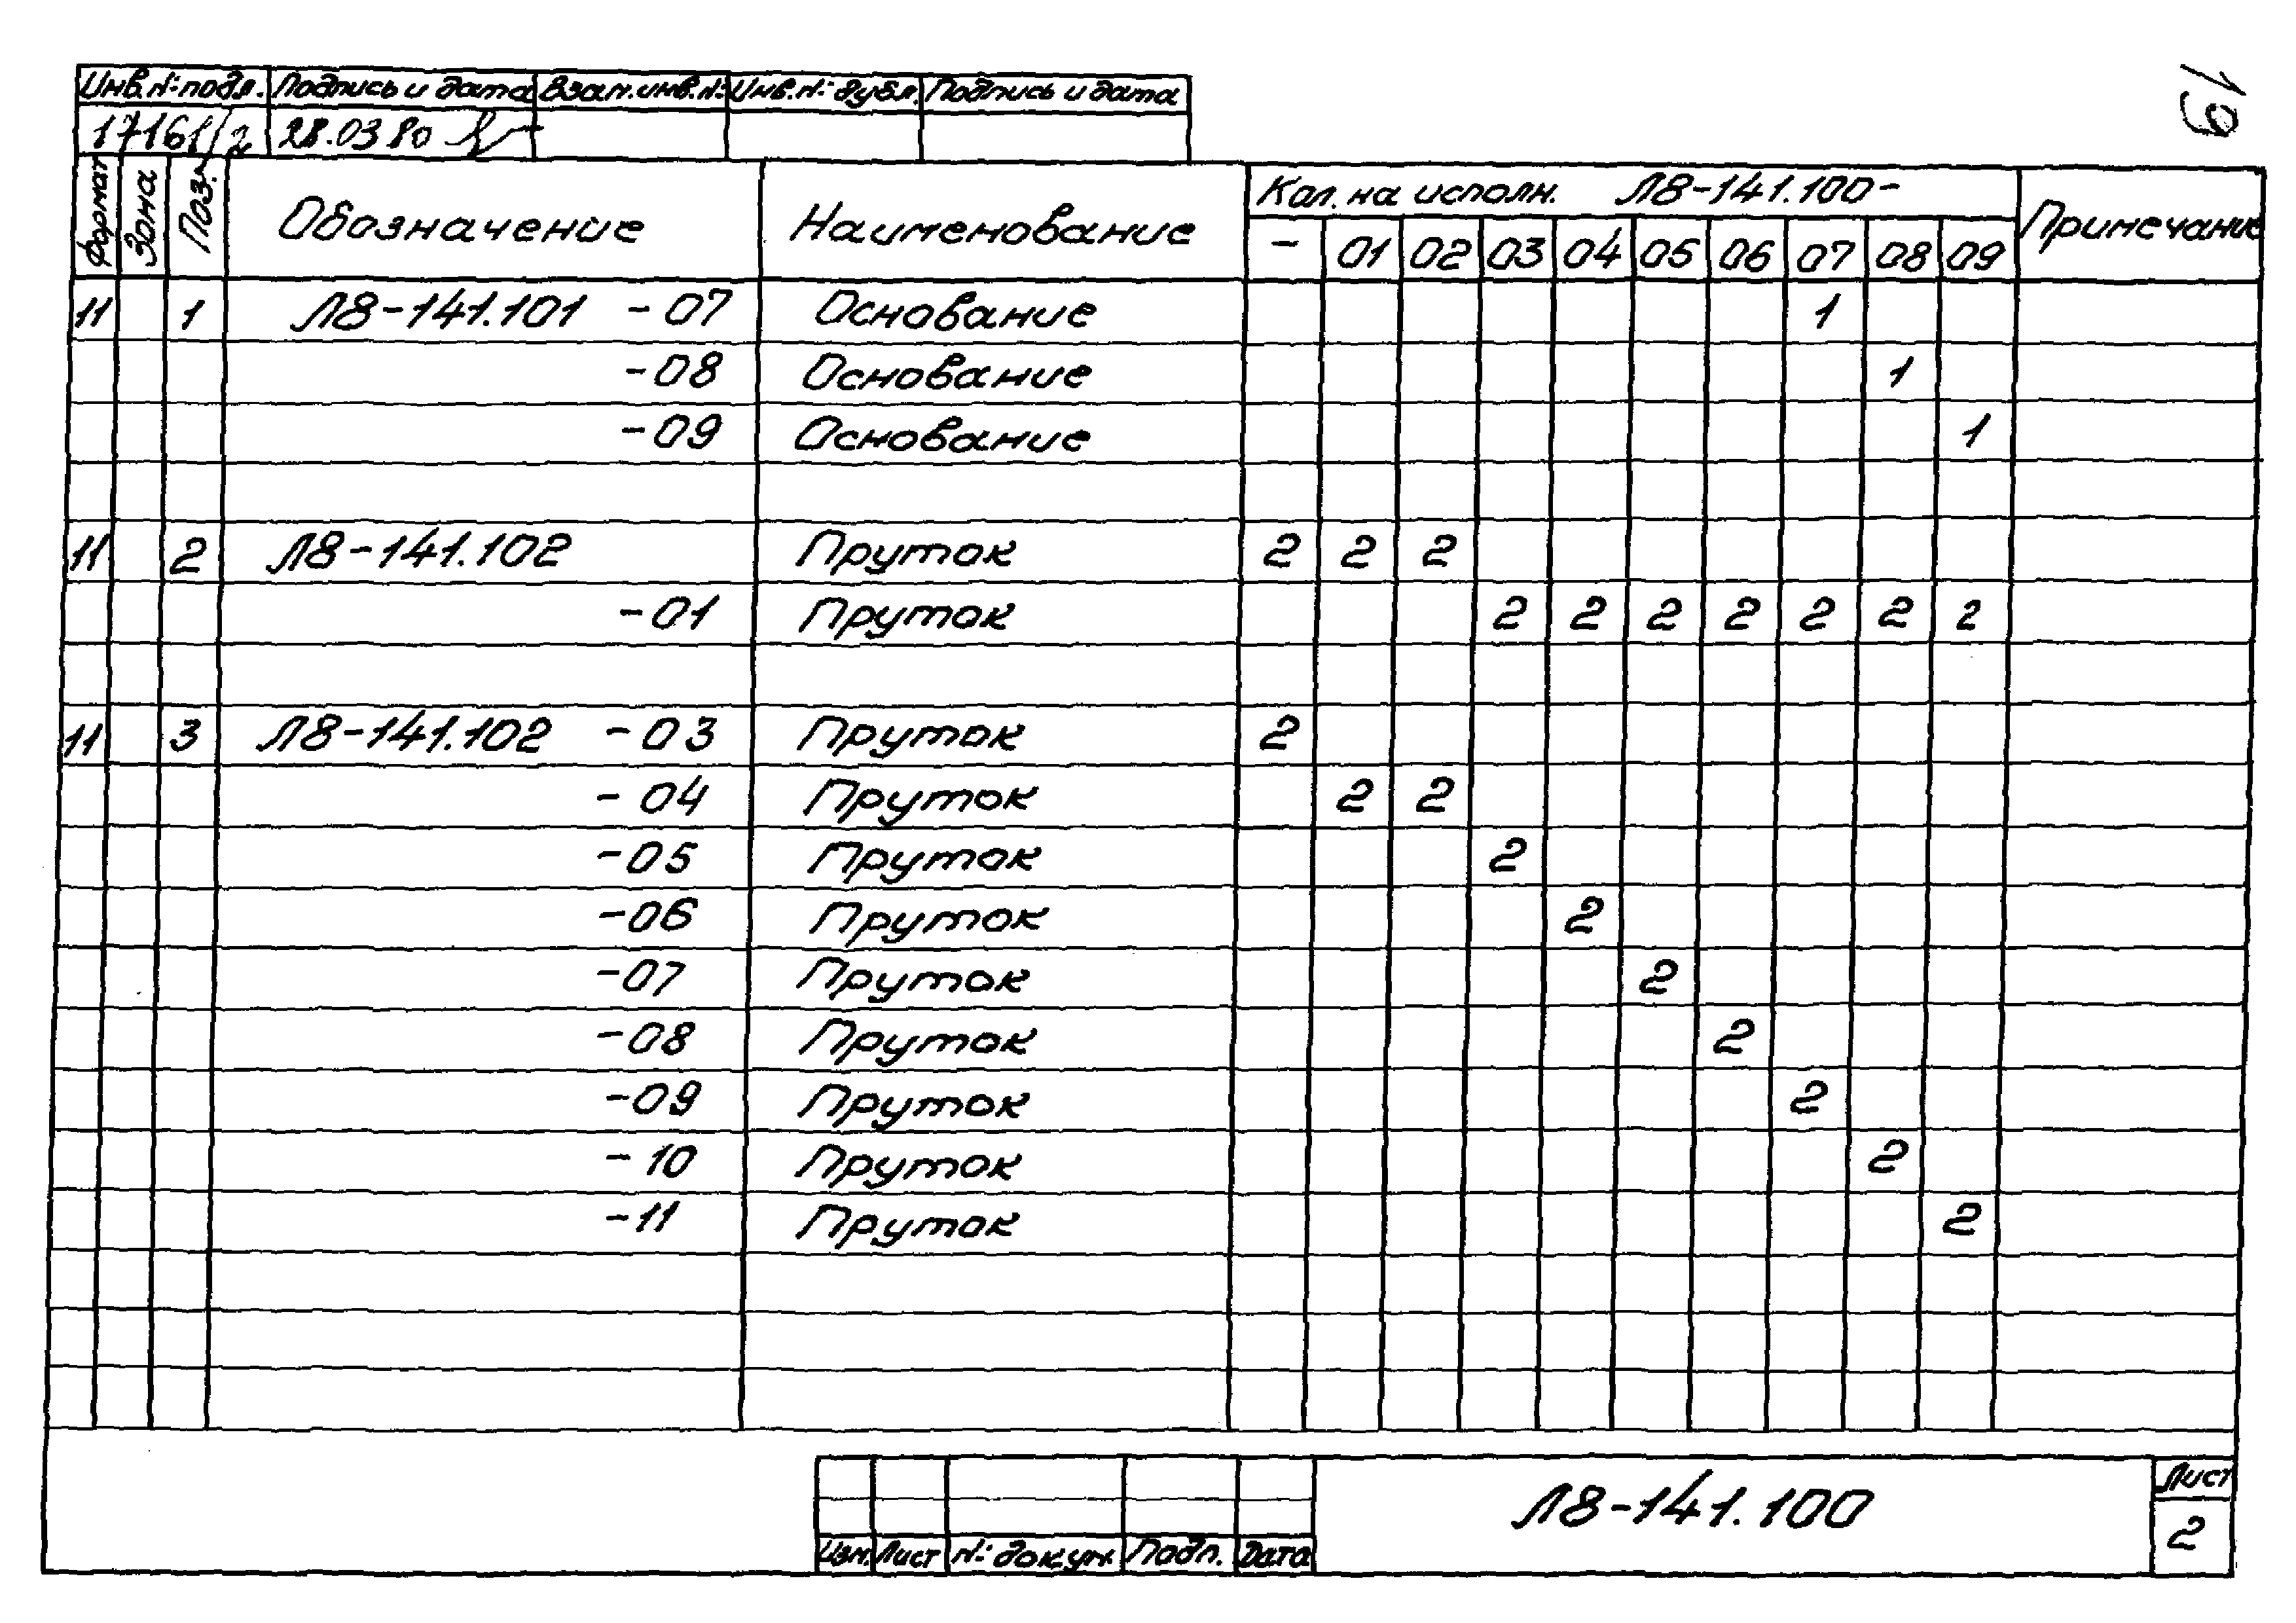 19
Инв.№подл. Подпись и дата Взам.инв.№ Инв.№ дубл. Подпись и дата
17161/2 28.03 80
Формат Зона Поз. Обозначение Наименование Кол. на исполн. Л8-141.100- Примечание
- 01 02 03 04 05 06 07 08 09
11 1 Л8-141.101 -07 Основание 1
-08 Основание 1
-09 Основание 1
11 2 Л8-141.102 Пруток 2 2 2
-01 Пруток 2 2 2 2 2 2 2
11 3 Л8-141.102 -03 Пруток 2
-04 Пруток 2 2
-05 Пруток 2
-06 Пруток 2
-07 Пруток 2
-08 Пруток 2
-09 Пруток 2
-10 Пруток 2
-11 Пруток 2
Л8-141.100 Лист
2
Изм. Лист № докум. Подп. Дата